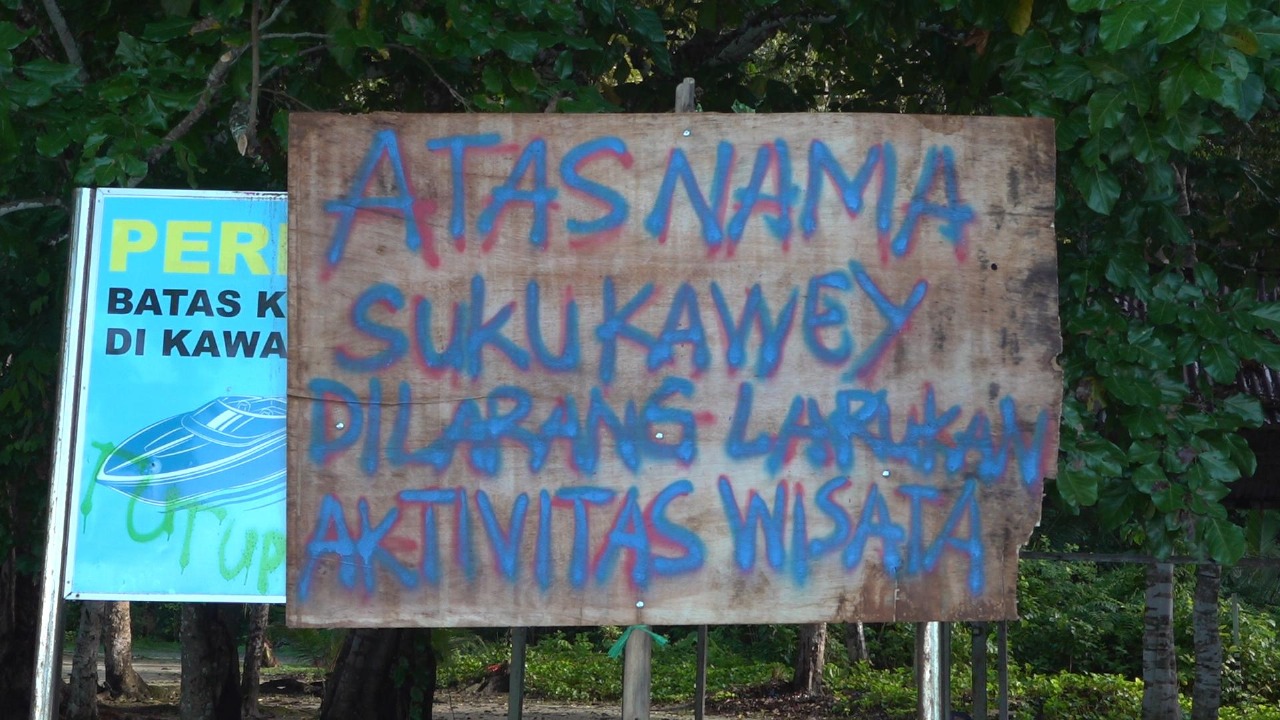 PERI
BATAS K
DI KAWA
TUTUP
ATAS NAMA
SUKU KAWEY
DILARANG LARUKAN
AKTIVITAS WISATA